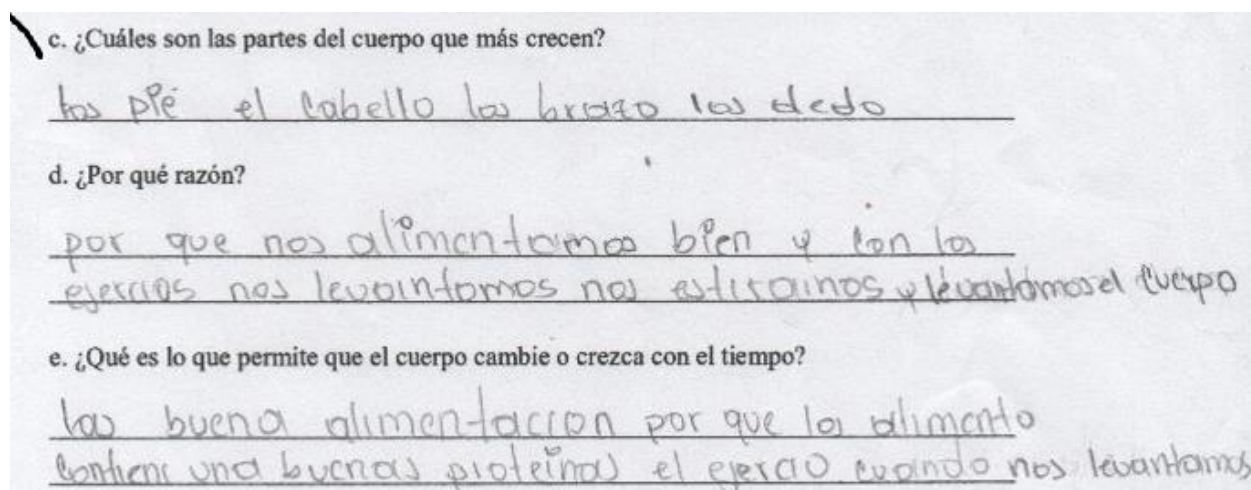 c. ¿Cuáles son las partes del cuerpo que más crecen?
los pié el cabello los brazo los dedo
d. ¿Por qué razón?
por que nos alimentamos bien y con los
ejercios nos levaintomos nos estirainos y levantamos el cuerpo
e. ¿Qué es lo que permite que el cuerpo cambie o crezca con el tiempo?
las buena alimentaccion por que los alimento
contiene una buenas proteinas el ejercio cuando nos levantamos